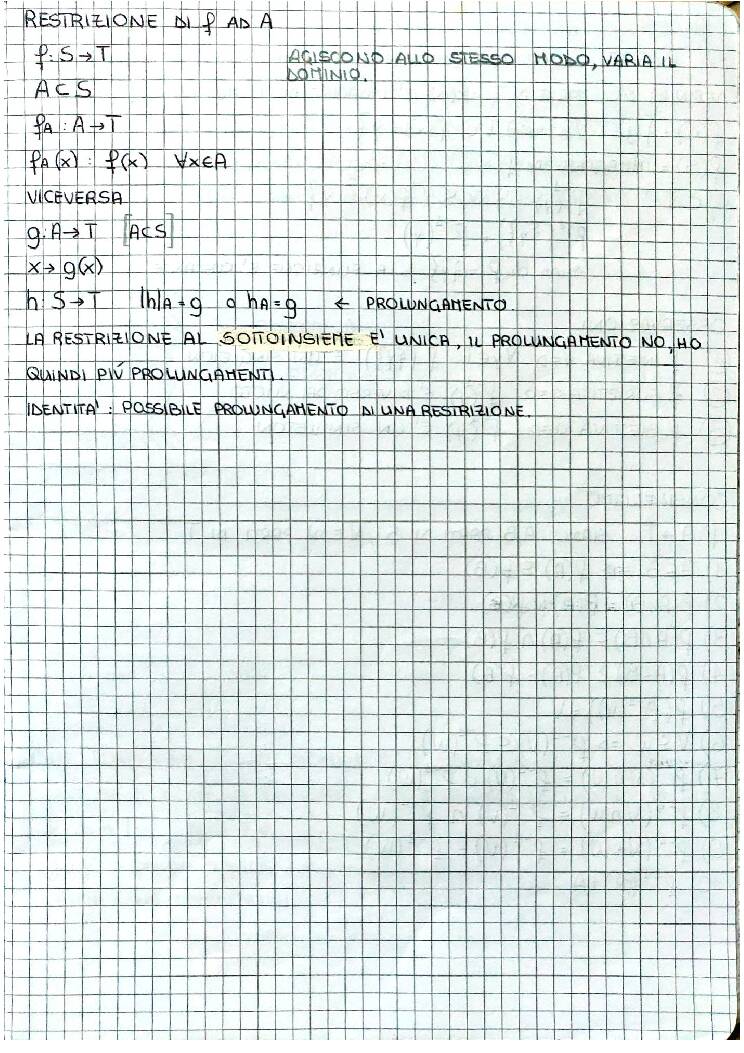 RESTRIZIONE DI f AD A
f: S→T
AGISCONO ALLO STESSO MODO, VARIA IL
DOMINIO.
A⊂S
fA : A→T
fA(x) : f(x) ∀x∈A
VICEVERSA
g: A→T [A⊂S]
x→g(x)
h: S→T h|A=g o hA=g ← PROLUNGAMENTO.
LA RESTRIZIONE AL SOTTOINSIEME E' UNICA, IL PROLUNGAMENTO NO, HO
QUINDI PIÚ PROLUNGAMENTI.
IDENTITA' : POSSIBILE PROLUNGAMENTO DI UNA RESTRIZIONE.